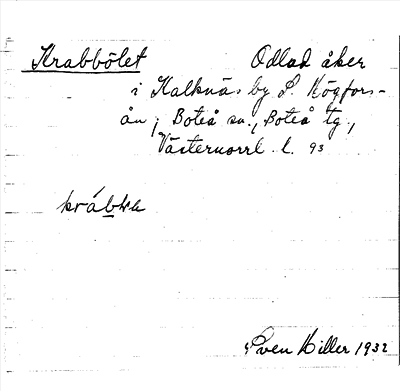 Krabbölet Odlad åker
i Kalknäs by S. Högfors-
ån, Boteå sn., Boteå tg.,
Västernorrl. l. 93
Sven Hiller 1932